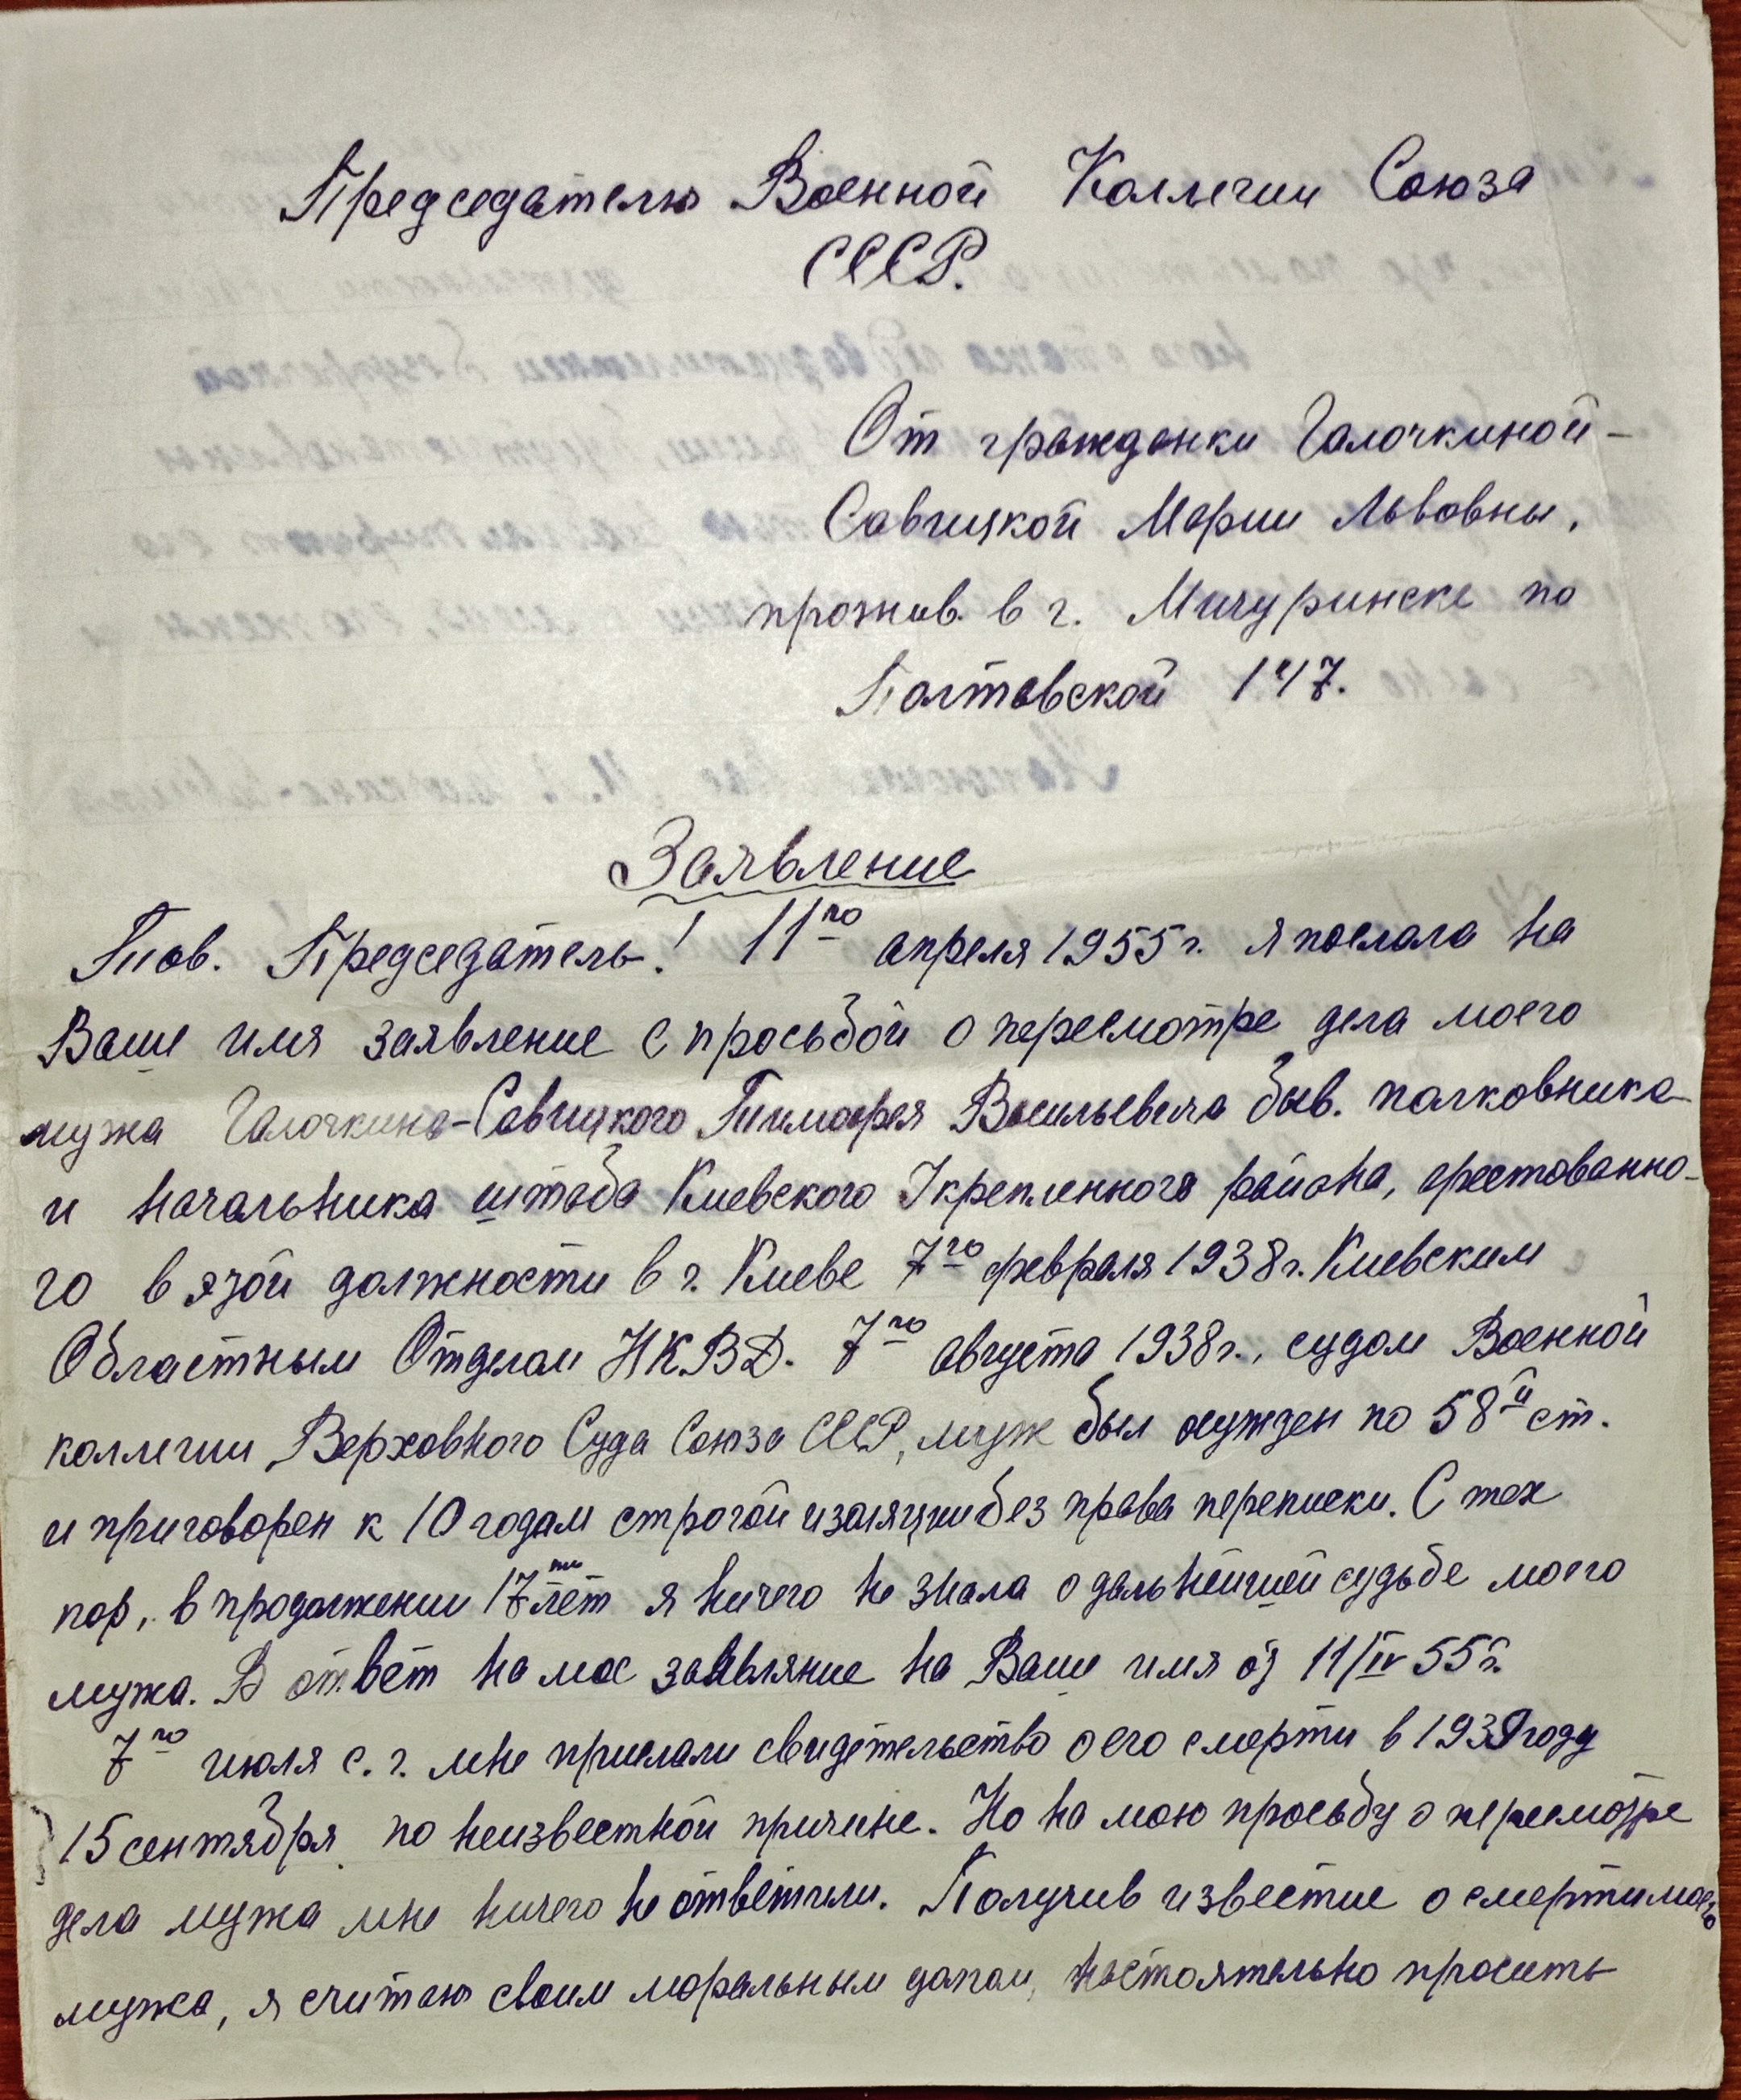 Председателю Военной Коллегии Союза
СССР.
От гражданки Галочкиной-
Савицкой Марии Львовны,
прожив. в г. Мичуринске по
Полтавской 147.
Заявление
Тов. Председатель! 11го апреля 1955 г. я послала на
Ваше имя заявление с просьбой о пересмотре дела моего
мужа Галочкина-Савицкого Тимофея Васильевича быв. полковника
и начальника штаба Киевского Укрепленного района, арестованно-
го в этой должности в г. Киеве 7го февраля 1938 г. Киевским
Областным Отделом НКВД. 7го августа 1938 г., судом Военной
коллегии Верховного Суда Союза СССР, муж был осужден по 58й ст.
и приговорен к 10 годам строгой изоляции без права переписки. С тех
пор, в продолжении 17ти лет я ничего не знала о дальнейшей судьбе моего
мужа. В ответ на мое заявляние на Ваше имя от 11/IV 55 г.
7го июля с. г. мне прислали свидетельство о его смерти в 1939 году
15 сентября по неизвестной причине. Но на мою просьбу о пересмотре
дела мужа мне ничего не ответили. Получив известие о смерти моего
мужа, я считаю своим моральным долгом, настоятельно просить